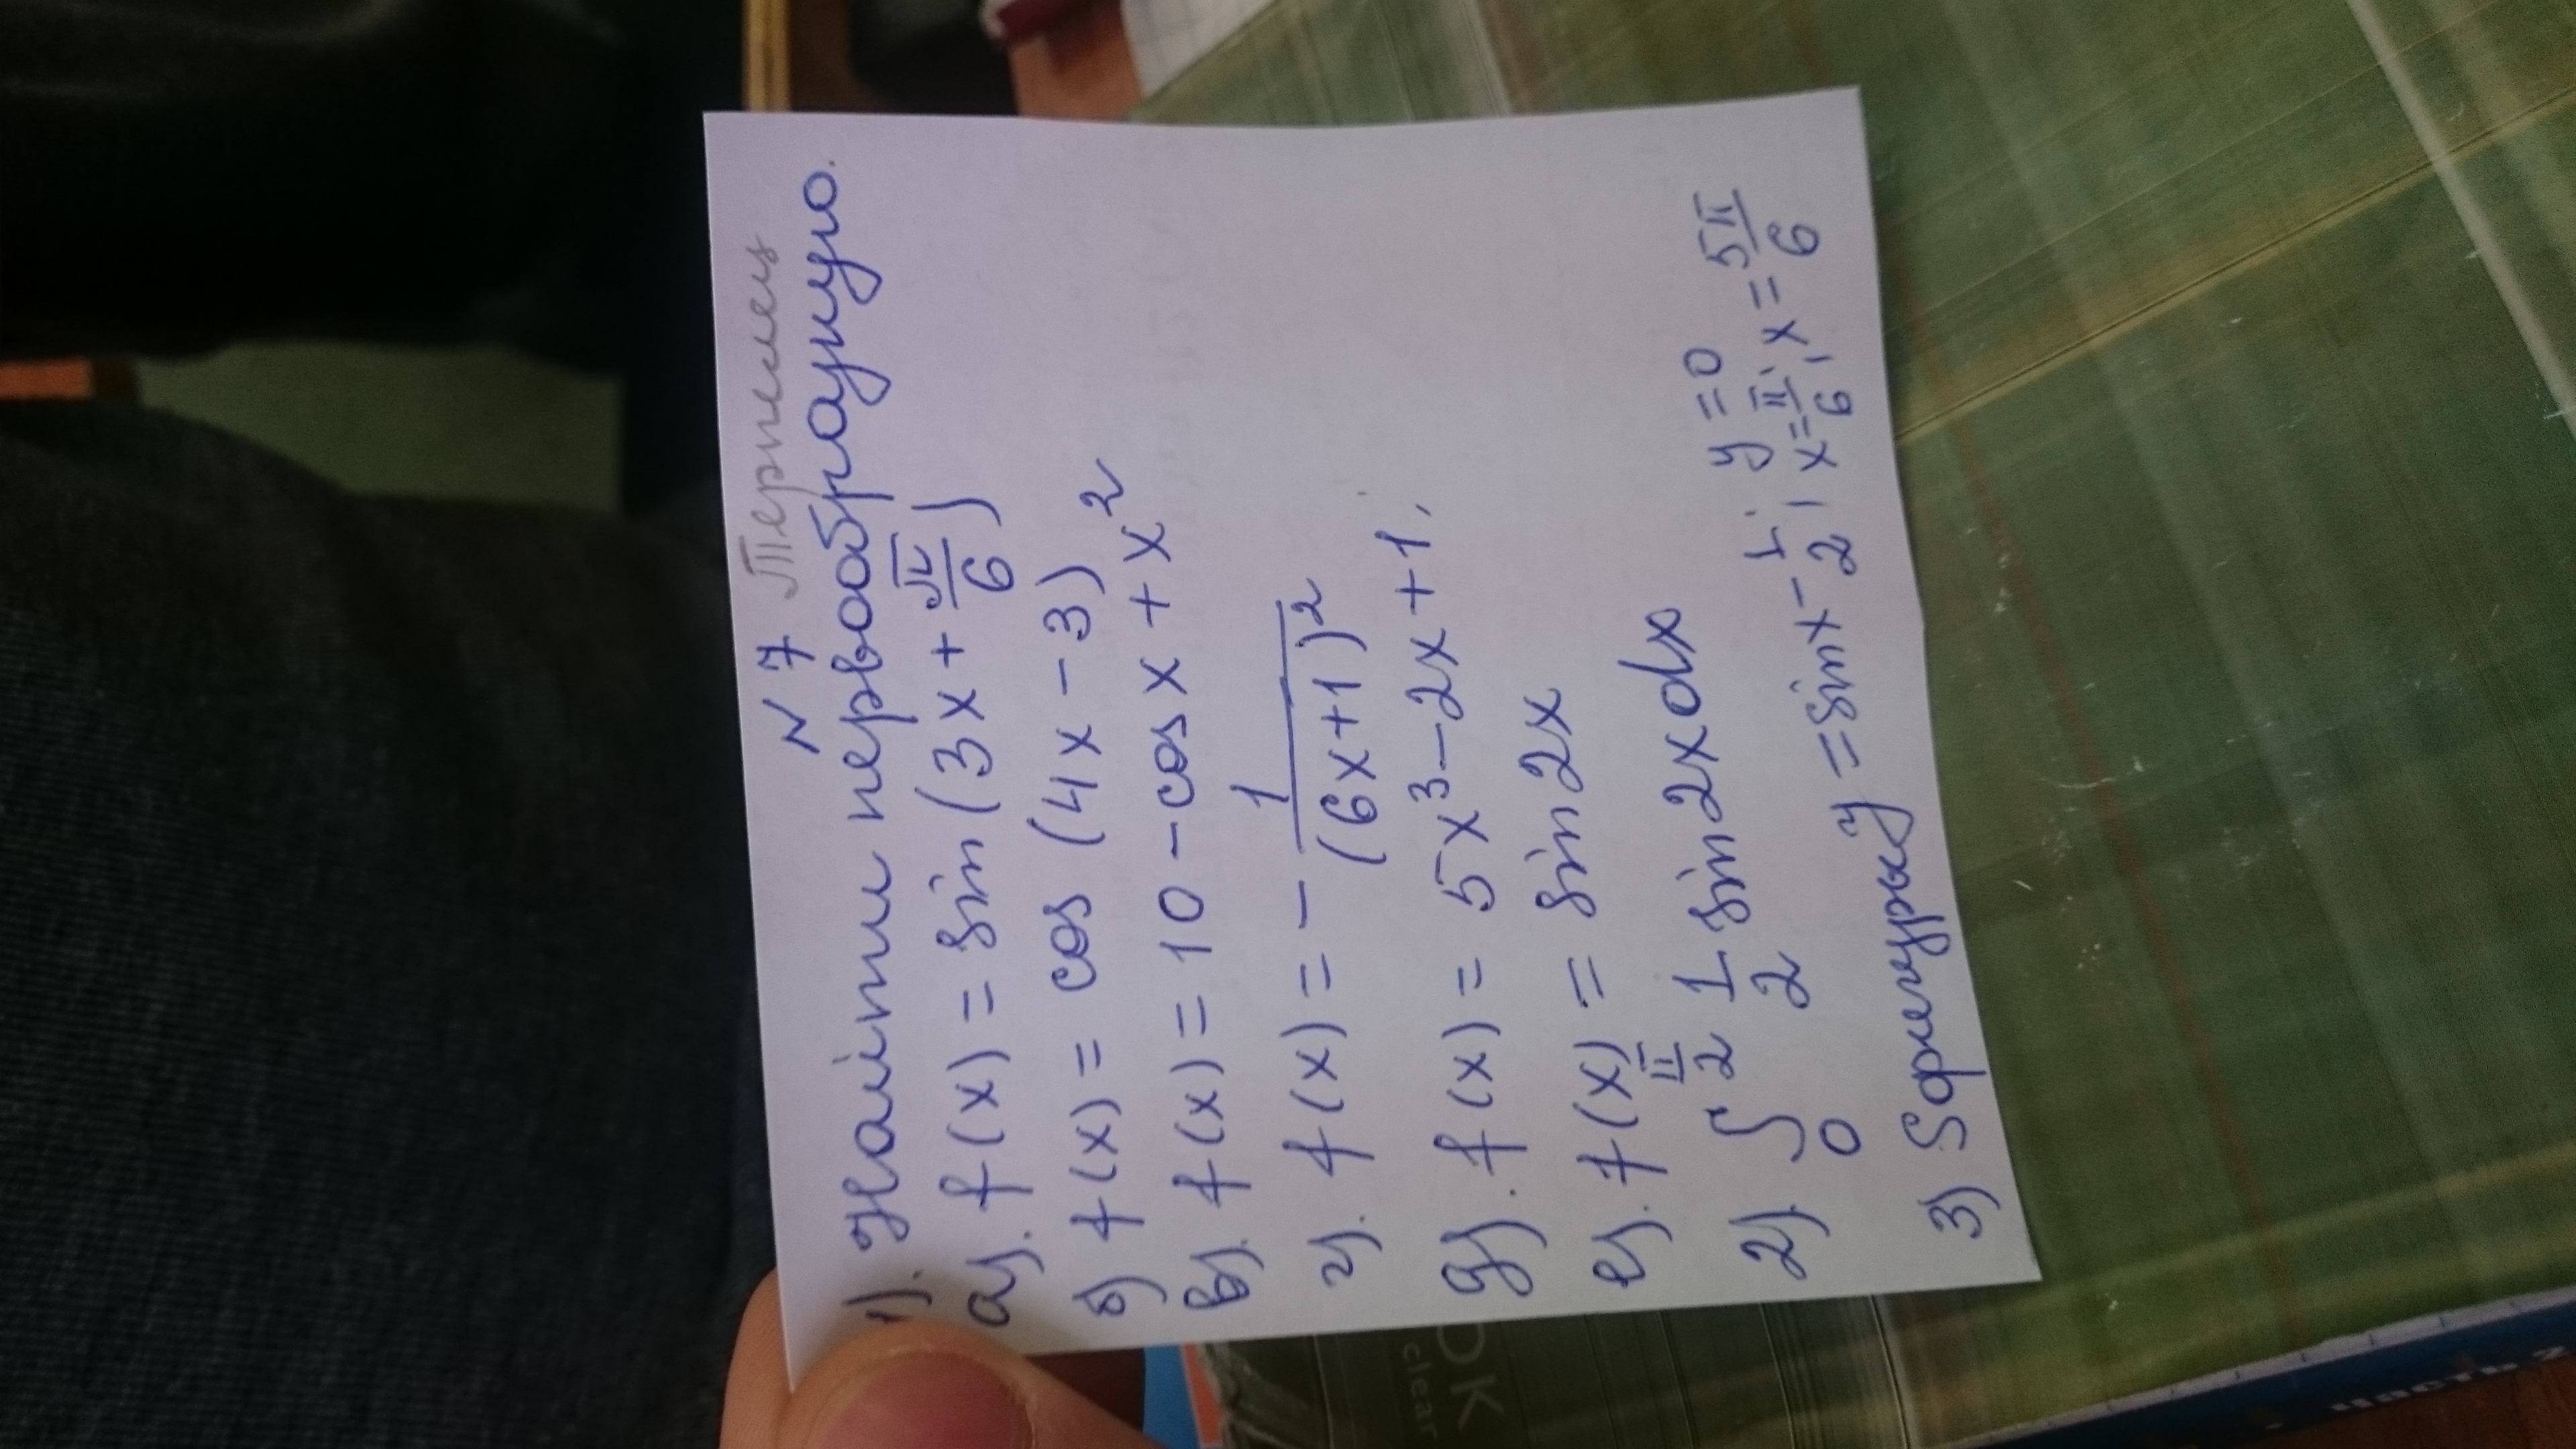 N 7 Терпелец
1). Найти первообразную.
а). f(x) = sin(3x + π/6)
б) f(x) = cos (4x - 3)
в). f(x) = 10 - cos x + x²
г). f(x) = - 1/(6x+1)²
д). f(x) = 5x³ - 2x + 1,
е). f(x) = sin 2x
2). ∫₀^(π/2) 1/2 sin 2x dx
3) Sфигуры y = sin x - 1/2; y = 0; x = π/6; x = 5π/6
OK
clear
Часть 2